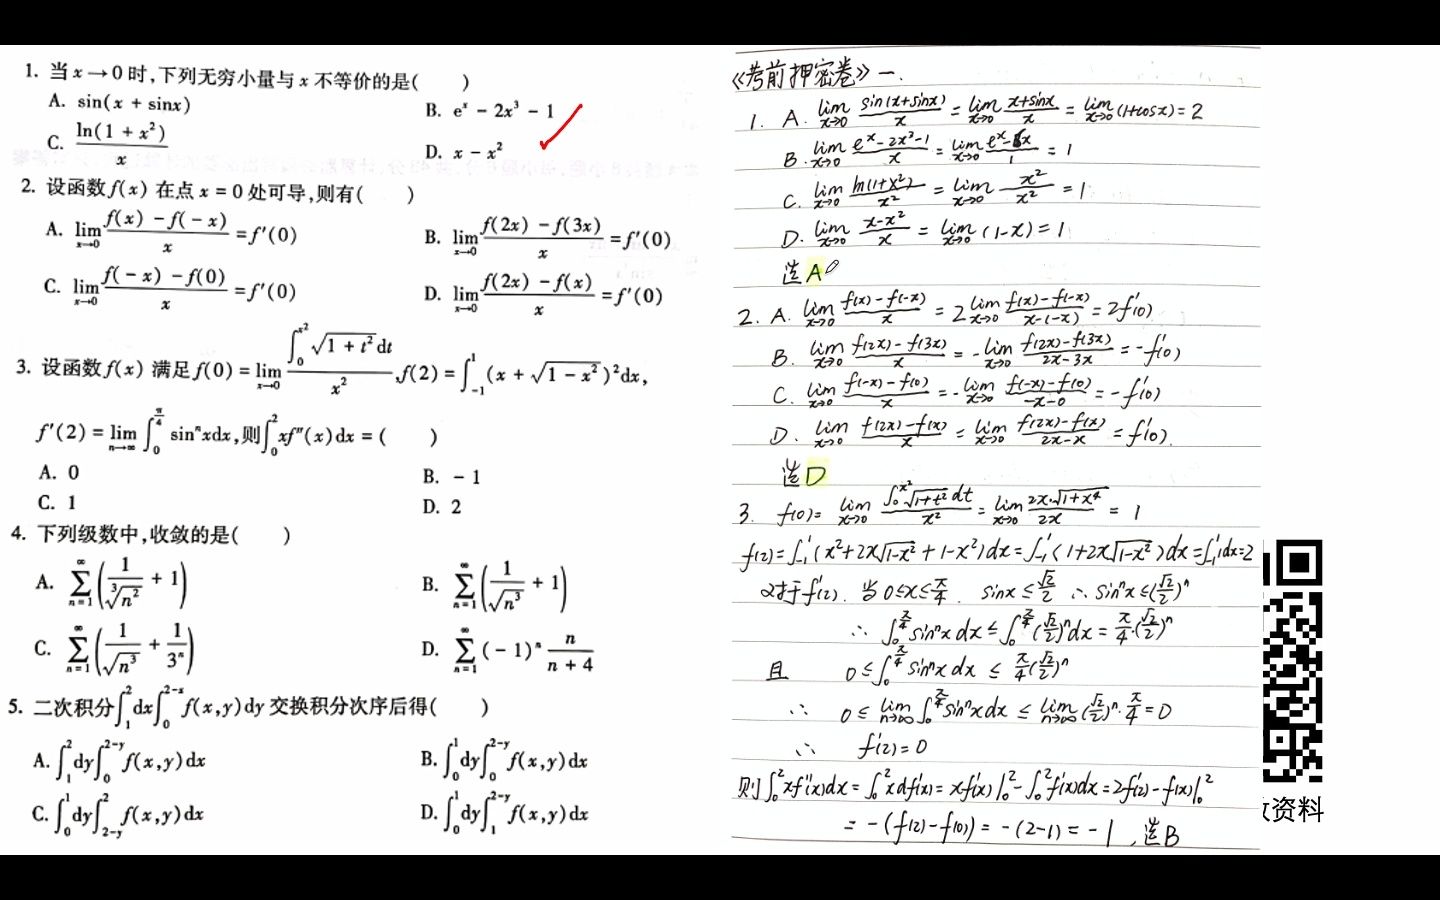 1. 当 x→0 时,下列无穷小量与 x 不等价的是(　　)
A. sin(x + sinx)
B. eˣ - 2x³ - 1
C. ln(1 + x²)/x
D. x - x²
2. 设函数 f(x) 在点 x = 0 处可导,则有(　　)
A. lim_{x→0} (f(x) - f(-x))/x = f′(0)
B. lim_{x→0} (f(2x) - f(3x))/x = f′(0)
C. lim_{x→0} (f(-x) - f(0))/x = f′(0)
D. lim_{x→0} (f(2x) - f(x))/x = f′(0)
3. 设函数 f(x) 满足 f(0) = lim_{x→0} (∫_0^{x²} √(1 + t²) dt)/x², f(2) = ∫_{-1}^{1} (x + √(1 - x²))² dx,
f′(2) = lim_{n→∞} ∫_0^{π/4} sinⁿxdx,则 ∫_0^2 xf″(x)dx = (　　)
A. 0
B. - 1
C. 1
D. 2
4. 下列级数中,收敛的是(　　)
A. ∑_{n=1}^{∞} (1/∛n² + 1)
B. ∑_{n=1}^{∞} (1/√n³ + 1)
C. ∑_{n=1}^{∞} (1/√n³ + 1/3ⁿ)
D. ∑_{n=1}^{∞} (-1)ⁿ n/(n + 4)
5. 二次积分 ∫_1^2 dx ∫_0^{2-x} f(x,y)dy 交换积分次序后得(　　)
A. ∫_1^2 dy ∫_0^{2-y} f(x,y)dx
B. ∫_0^1 dy ∫_0^{2-y} f(x,y)dx
C. ∫_0^1 dy ∫_{2-y}^2 f(x,y)dx
D. ∫_0^1 dy ∫_1^{2-y} f(x,y)dx
《考前押密卷》一.
1. A. lim_{x→0} sin(x+sinx)/x = lim_{x→0} (x+sinx)/x = lim_{x→0} (1+cosx) = 2
B. lim_{x→0} (eˣ-2x³-1)/x = lim_{x→0} (eˣ-6x)/1 = 1
C. lim_{x→0} ln(1+x²)/x² = lim_{x→0} x²/x² = 1
D. lim_{x→0} (x-x²)/x = lim_{x→0} (1-x) = 1
选A
2. A. lim_{x→0} (f(x)-f(-x))/x = 2 lim_{x→0} (f(x)-f(-x))/(x-(-x)) = 2f′(0)
B. lim_{x→0} (f(2x)-f(3x))/x = -lim_{x→0} (f(2x)-f(3x))/(2x-3x) = -f′(0)
C. lim_{x→0} (f(-x)-f(0))/x = -lim_{x→0} (f(-x)-f(0))/(-x-0) = -f′(0)
D. lim_{x→0} (f(2x)-f(x))/x = lim_{x→0} (f(2x)-f(x))/(2x-x) = f′(0).
选D
3. f(0) = lim_{x→0} (∫_0^{x²} √(1+t²) dt)/x² = lim_{x→0} (2x·√(1+x⁴))/2x = 1
f(2) = ∫_{-1}^1 (x²+2x√(1-x²)+1-x²)dx = ∫_{-1}^1 (1+2x√(1-x²))dx = ∫_{-1}^1 dx = 2
对于f′(2). 当 0≤x≤π/4. sinx ≤ √2/2 ∴ sinⁿx ≤ (√2/2)ⁿ
∴ ∫_0^{π/4} sinⁿx dx ≤ ∫_0^{π/4} (√2/2)ⁿ dx = π/4·(√2/2)ⁿ
且 0 ≤ ∫_0^{π/4} sinⁿx dx ≤ π/4(√2/2)ⁿ
∴ 0 ≤ lim_{n→∞} ∫_0^{π/4} sinⁿx dx ≤ lim_{n→∞} (√2/2)ⁿ·π/4 = 0
∴ f′(2) = 0
则 ∫_0^2 xf″(x)dx = ∫_0^2 x df′(x) = xf′(x)|_0^2 - ∫_0^2 f′(x)dx = 2f′(2) - f(x)|_0^2
= -(f(2)-f(0)) = -(2-1) = -1 ,选B
资料